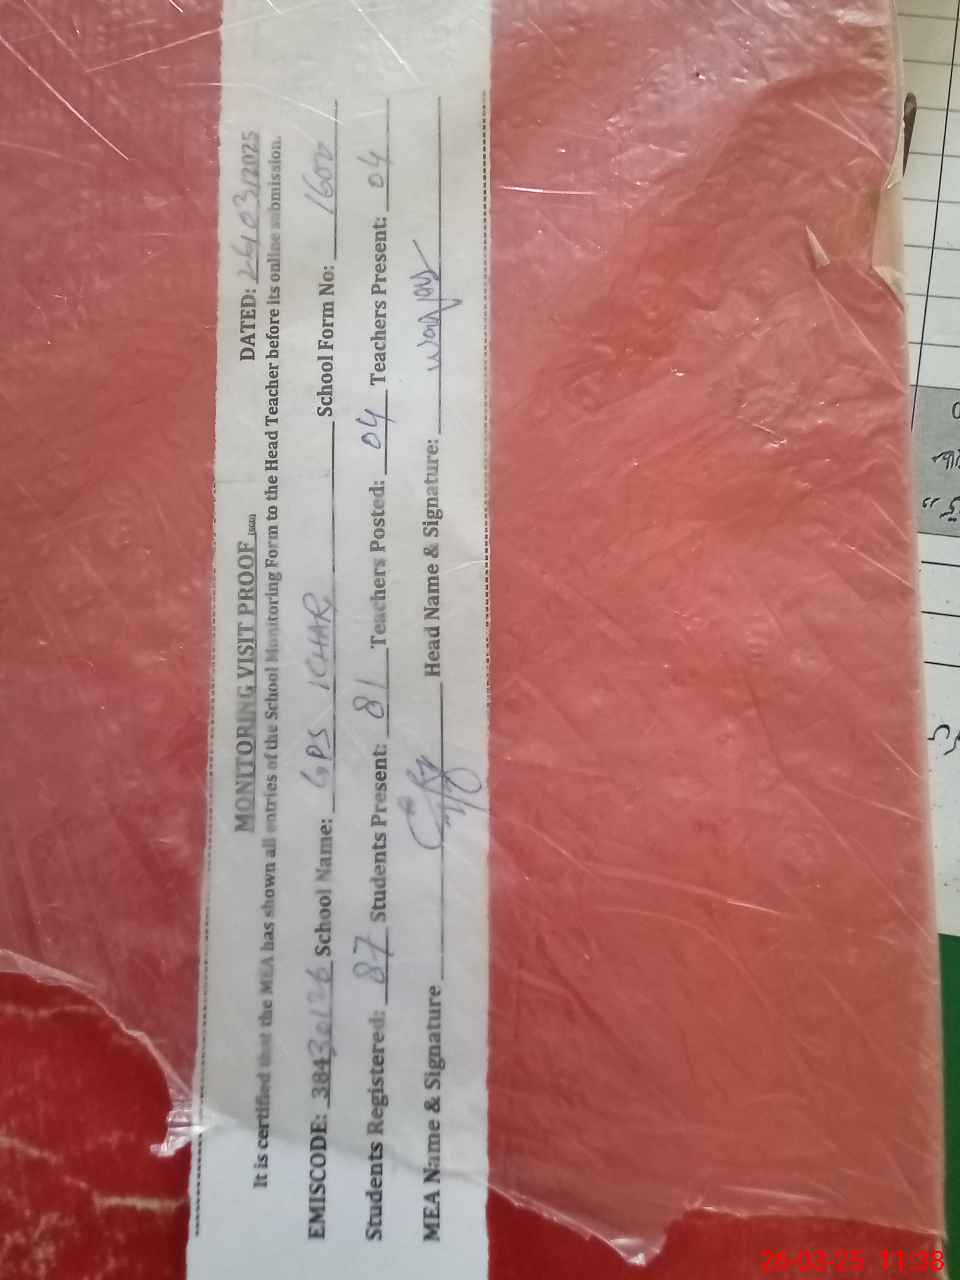 MONITORING VISIT PROOF
DATED: 26/03/2025
It is certified that the MEA has shown all entries of the School Monitoring Form to the Head Teacher before its online submission.
EMISCODE: 38430126 School Name: GPS ICHAR School Form No: 1600
Students Registered: 87 Students Present: 81 Teachers Posted: 04 Teachers Present: 04
MEA Name & Signature Head Name & Signature:
26-03-25 11:38